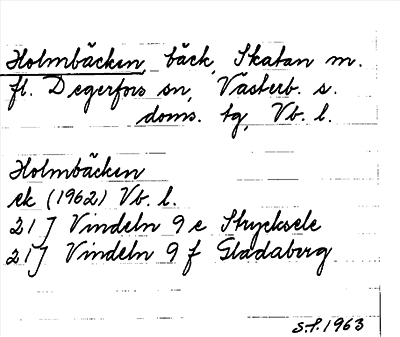 Holmbäcken, bäck, Skatan m.
fl. Degerfors sn, Västerb. s.
doms. tg, Vb. l.
Holmbäcken
ek (1962) Vb. l.
21 J Vindeln 9 e Strycksele
21 J Vindeln 9 f Gladaberg
S.F. 1963